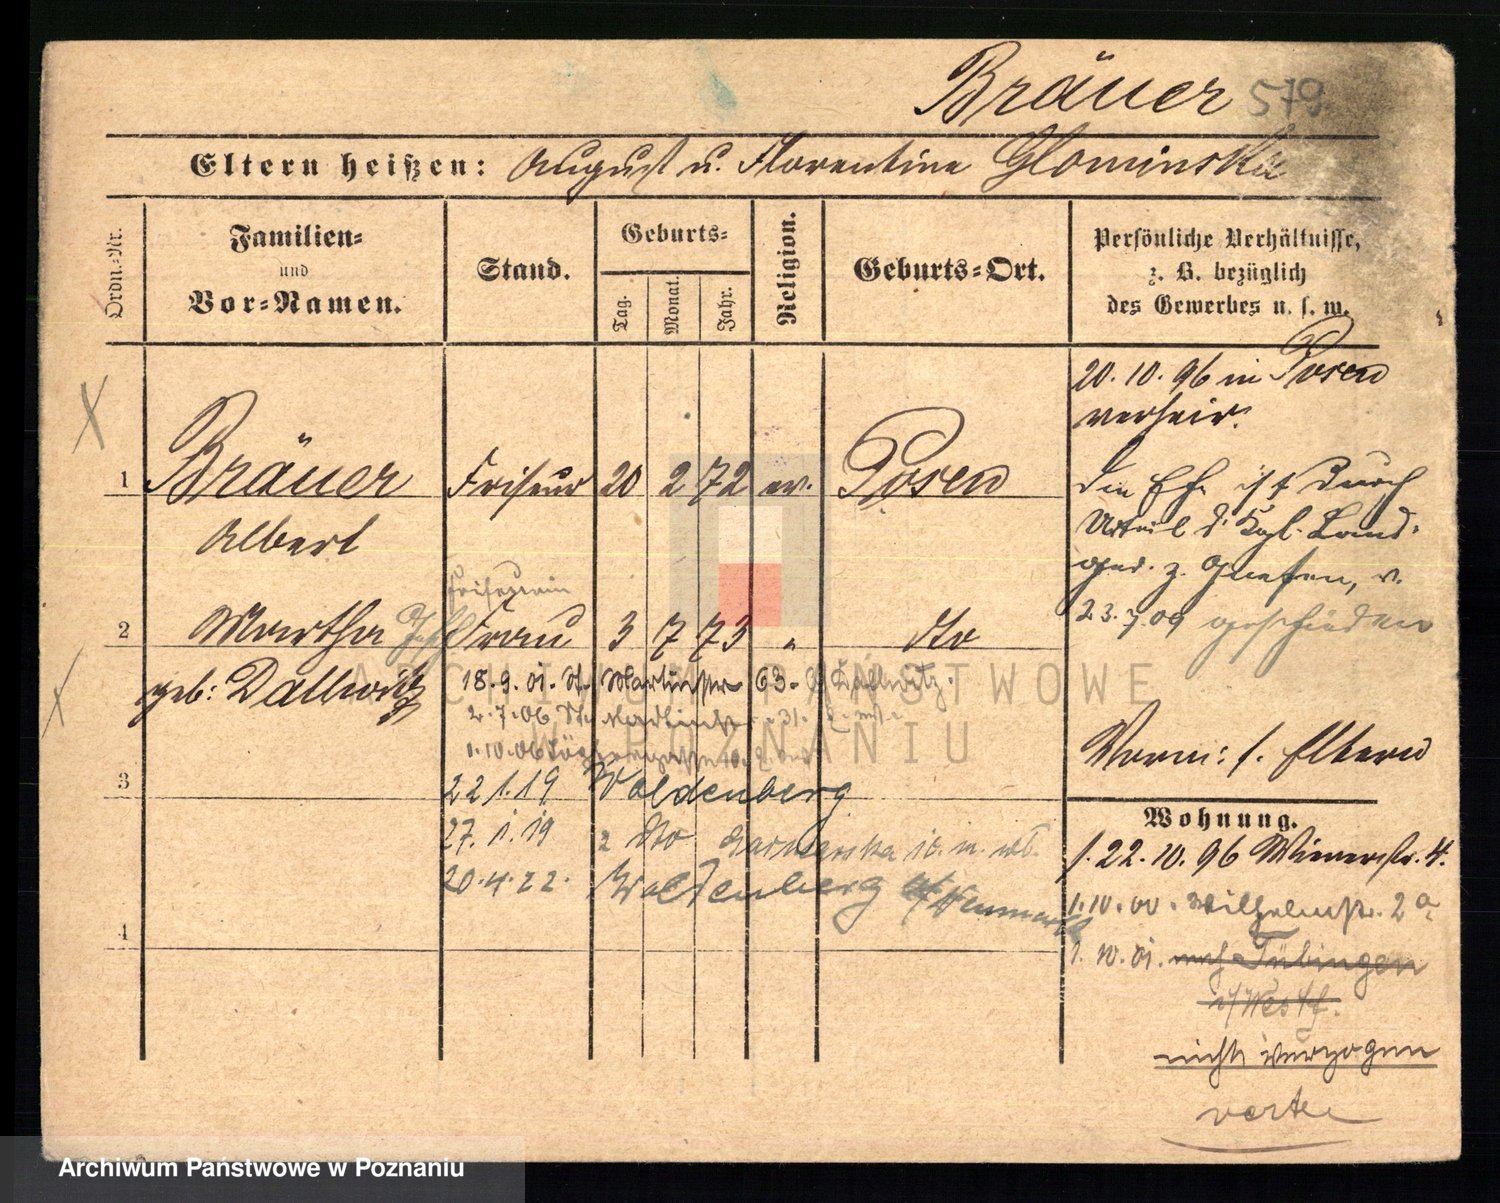 Bräuer 579
Eltern heißen: August u. Florentine Glominska
Ordn.-Nr.
Familien-
und
Vor-Namen.
Stand.
Geburts-
Tag.
Monat.
Jahr.
Religion.
Geburts-Ort.
Persönliche Verhältnisse,
z. B. bezüglich
des Gewerbes u. s. w.
1
Bräuer
Albert
Friseur
20 2 72
ev.
Posen
20.10.96 in Posen
verheir.
Die Ehe ist durch
Urteil d. Kgl. Land-
ger. z. Gnesen, v.
23.7.09 geschieden
2
Martha
geb: Dallwitz
Friseurin
Frau
3 7 73
"
dto
18.9.01. St. Martinstr 63.
2.7.06 St. 31.
1.10.06
3
22 1.19 Woldenberg
27.1.19
20.4.22. Woldenberg Neumark
4
Vorm: s. Eltern
Wohnung.
1. 22.10.96 Wienerstr. 4.
1.10.00. Wilhelmstr. 2a
1.10.01. nach Tübingen
i/Westf.
nicht verzogen
verte
ARCHIWUM PAŃSTWOWE
W POZNANIU
Archiwum Państwowe w Poznaniu